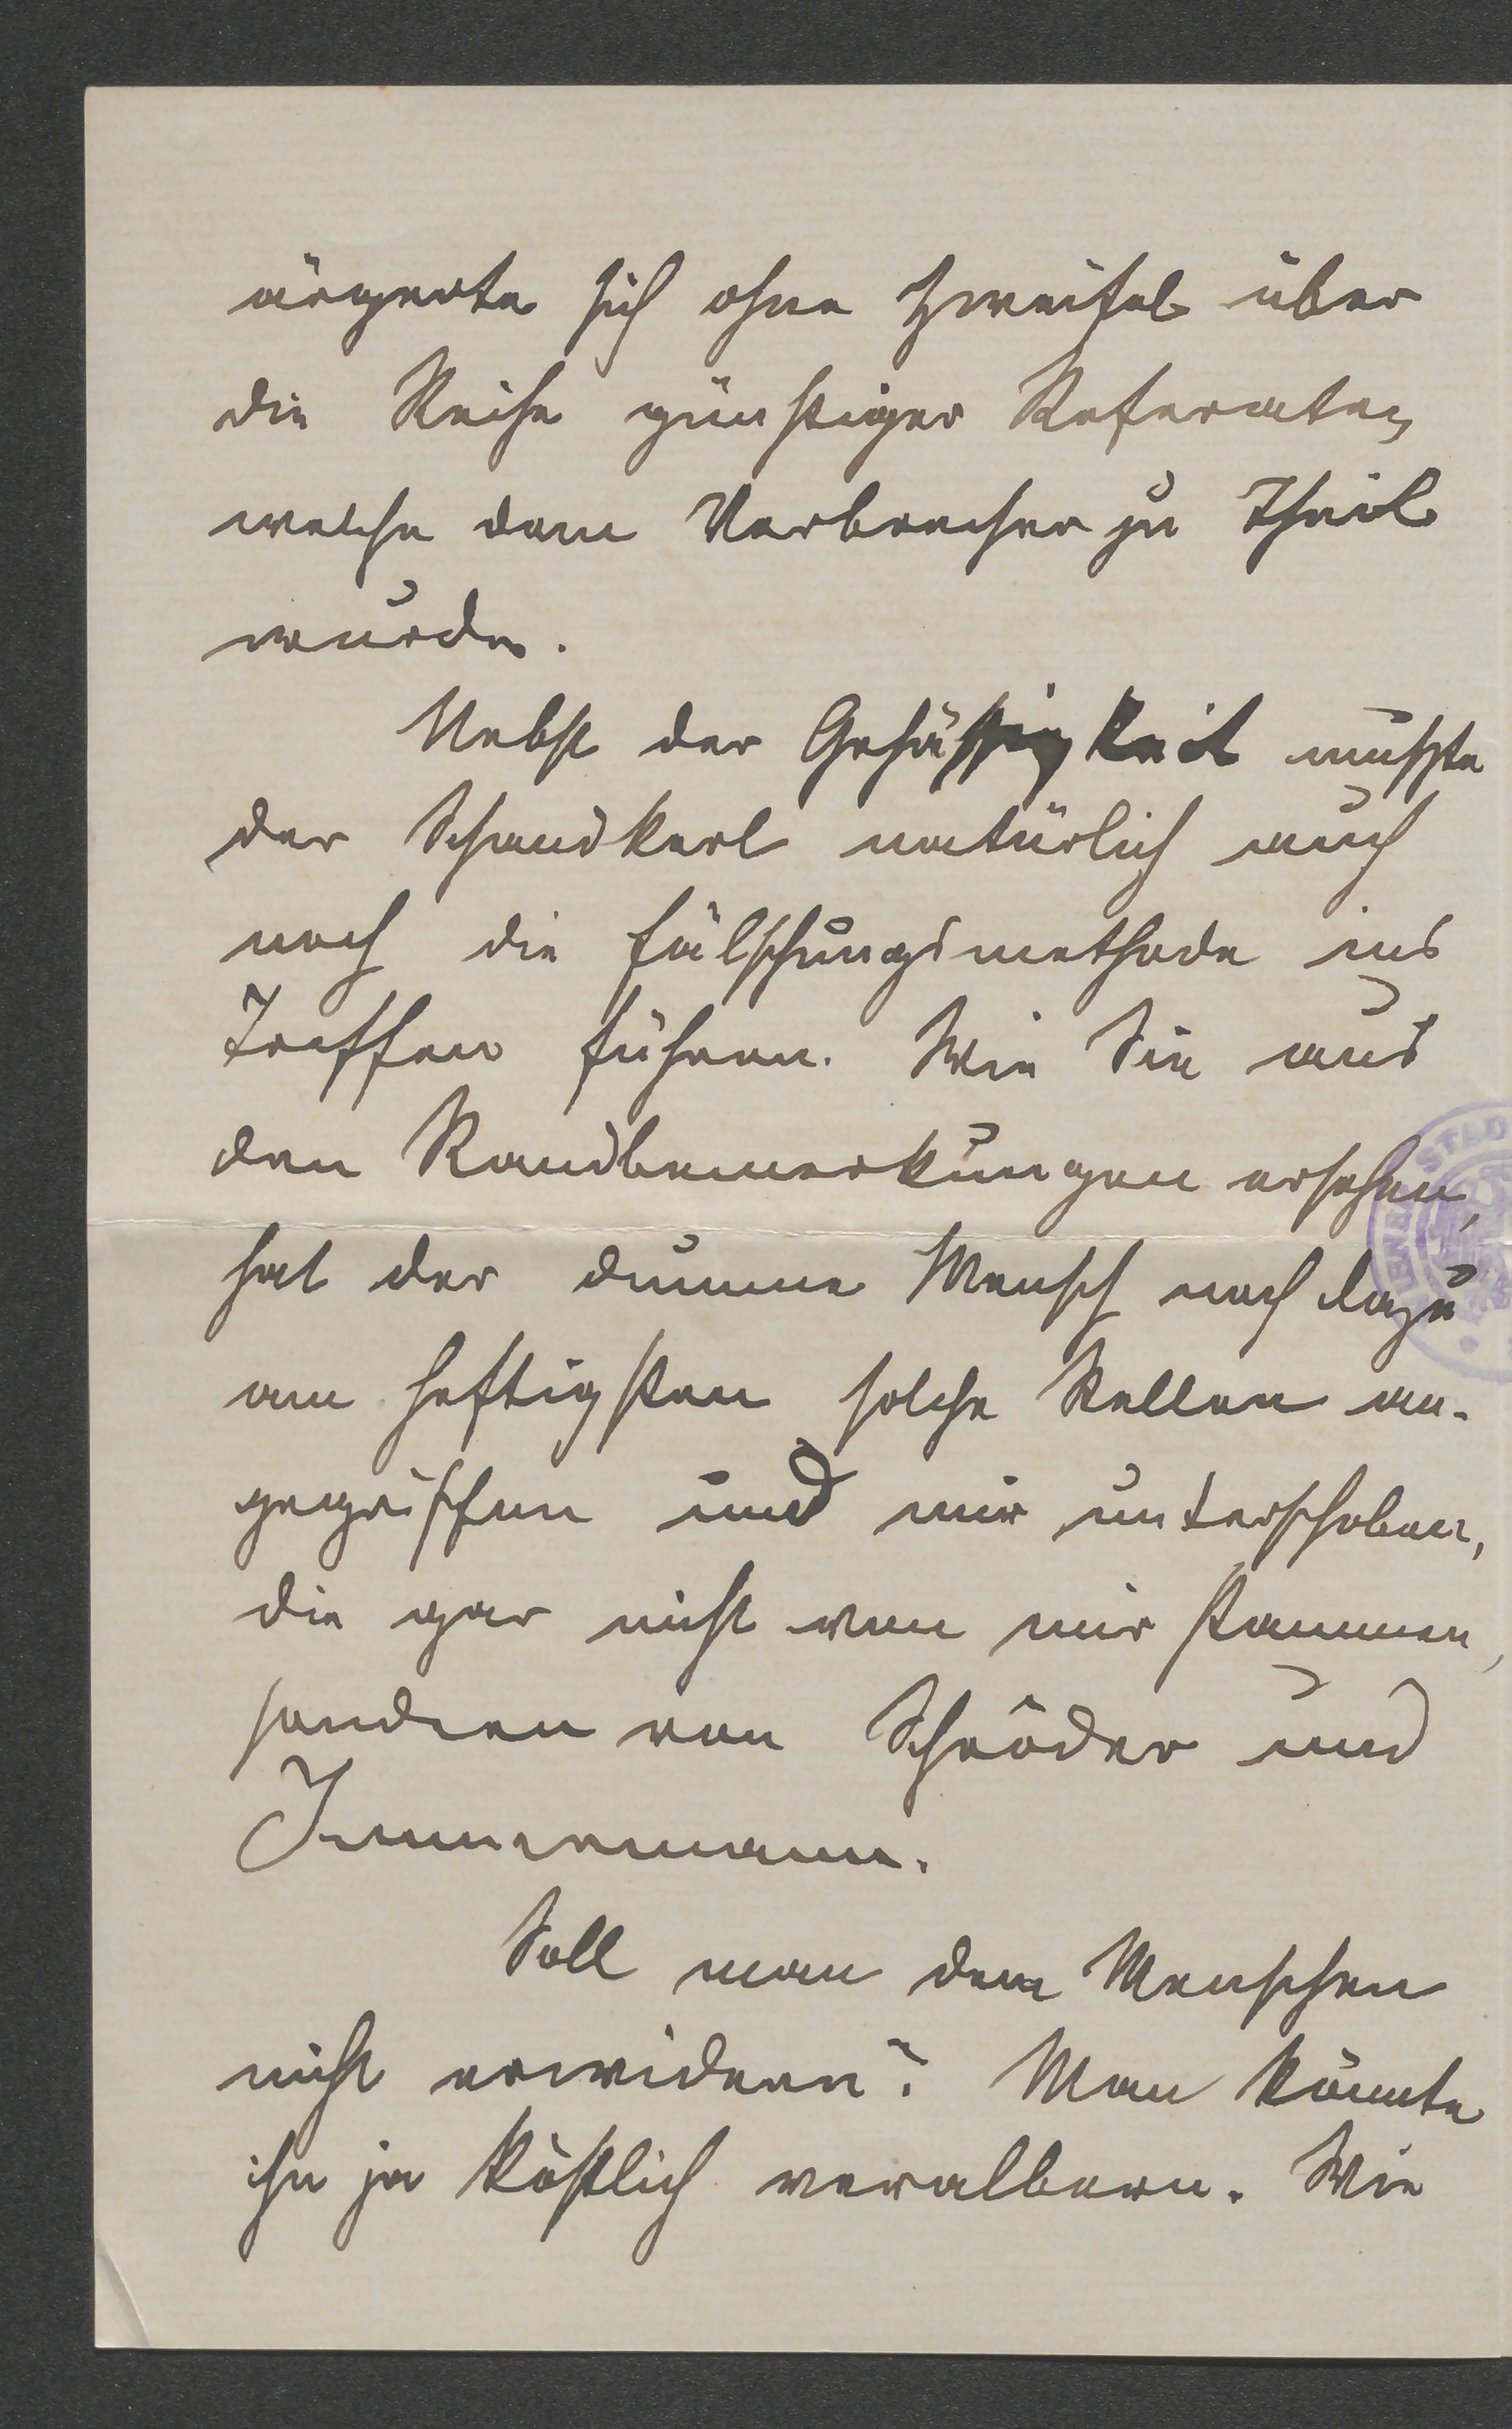 ärgerte sich ohne Zweifel über
die Reihe günstiger Referate,
welche dem Verbrecher zu Theil
wurde.
Nebst der Gehässigkeit mußte
der Schandkerl natürlich auch
noch die Fälschungsmethode ins
Treffen führen. Wie Sie aus
den Randbemerkungen ersehen,
hat der dumme Mensch noch dazu
am heftigsten solche Stellen an-
gegriffen und mir unterschoben,
die gar nicht von mir stammen,
sondern von Schröder und
Immermann.
Soll man dem Menschen
nicht erwidern? Man könnte
ihn ja köstlich veralbern. Wie